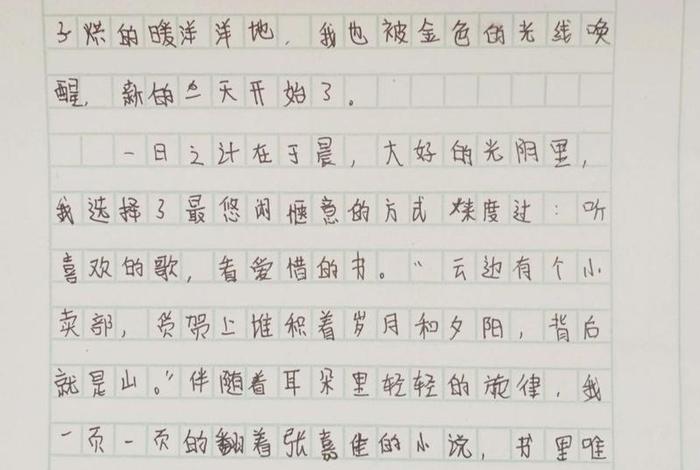 子烘的暖洋洋地，我也被金色的光线唤
醒，新的一天开始了。
一日之计在于晨，大好的光阴里，
我选择了最悠闲惬意的方式度过：听
喜欢的歌，看爱惜的书。“云边有个小
卖部，货架上堆积着岁月和夕阳，背后
就是山。”伴随着耳朵里轻轻的旋律，我
一页一页的翻着张嘉佳的小说，书里唯